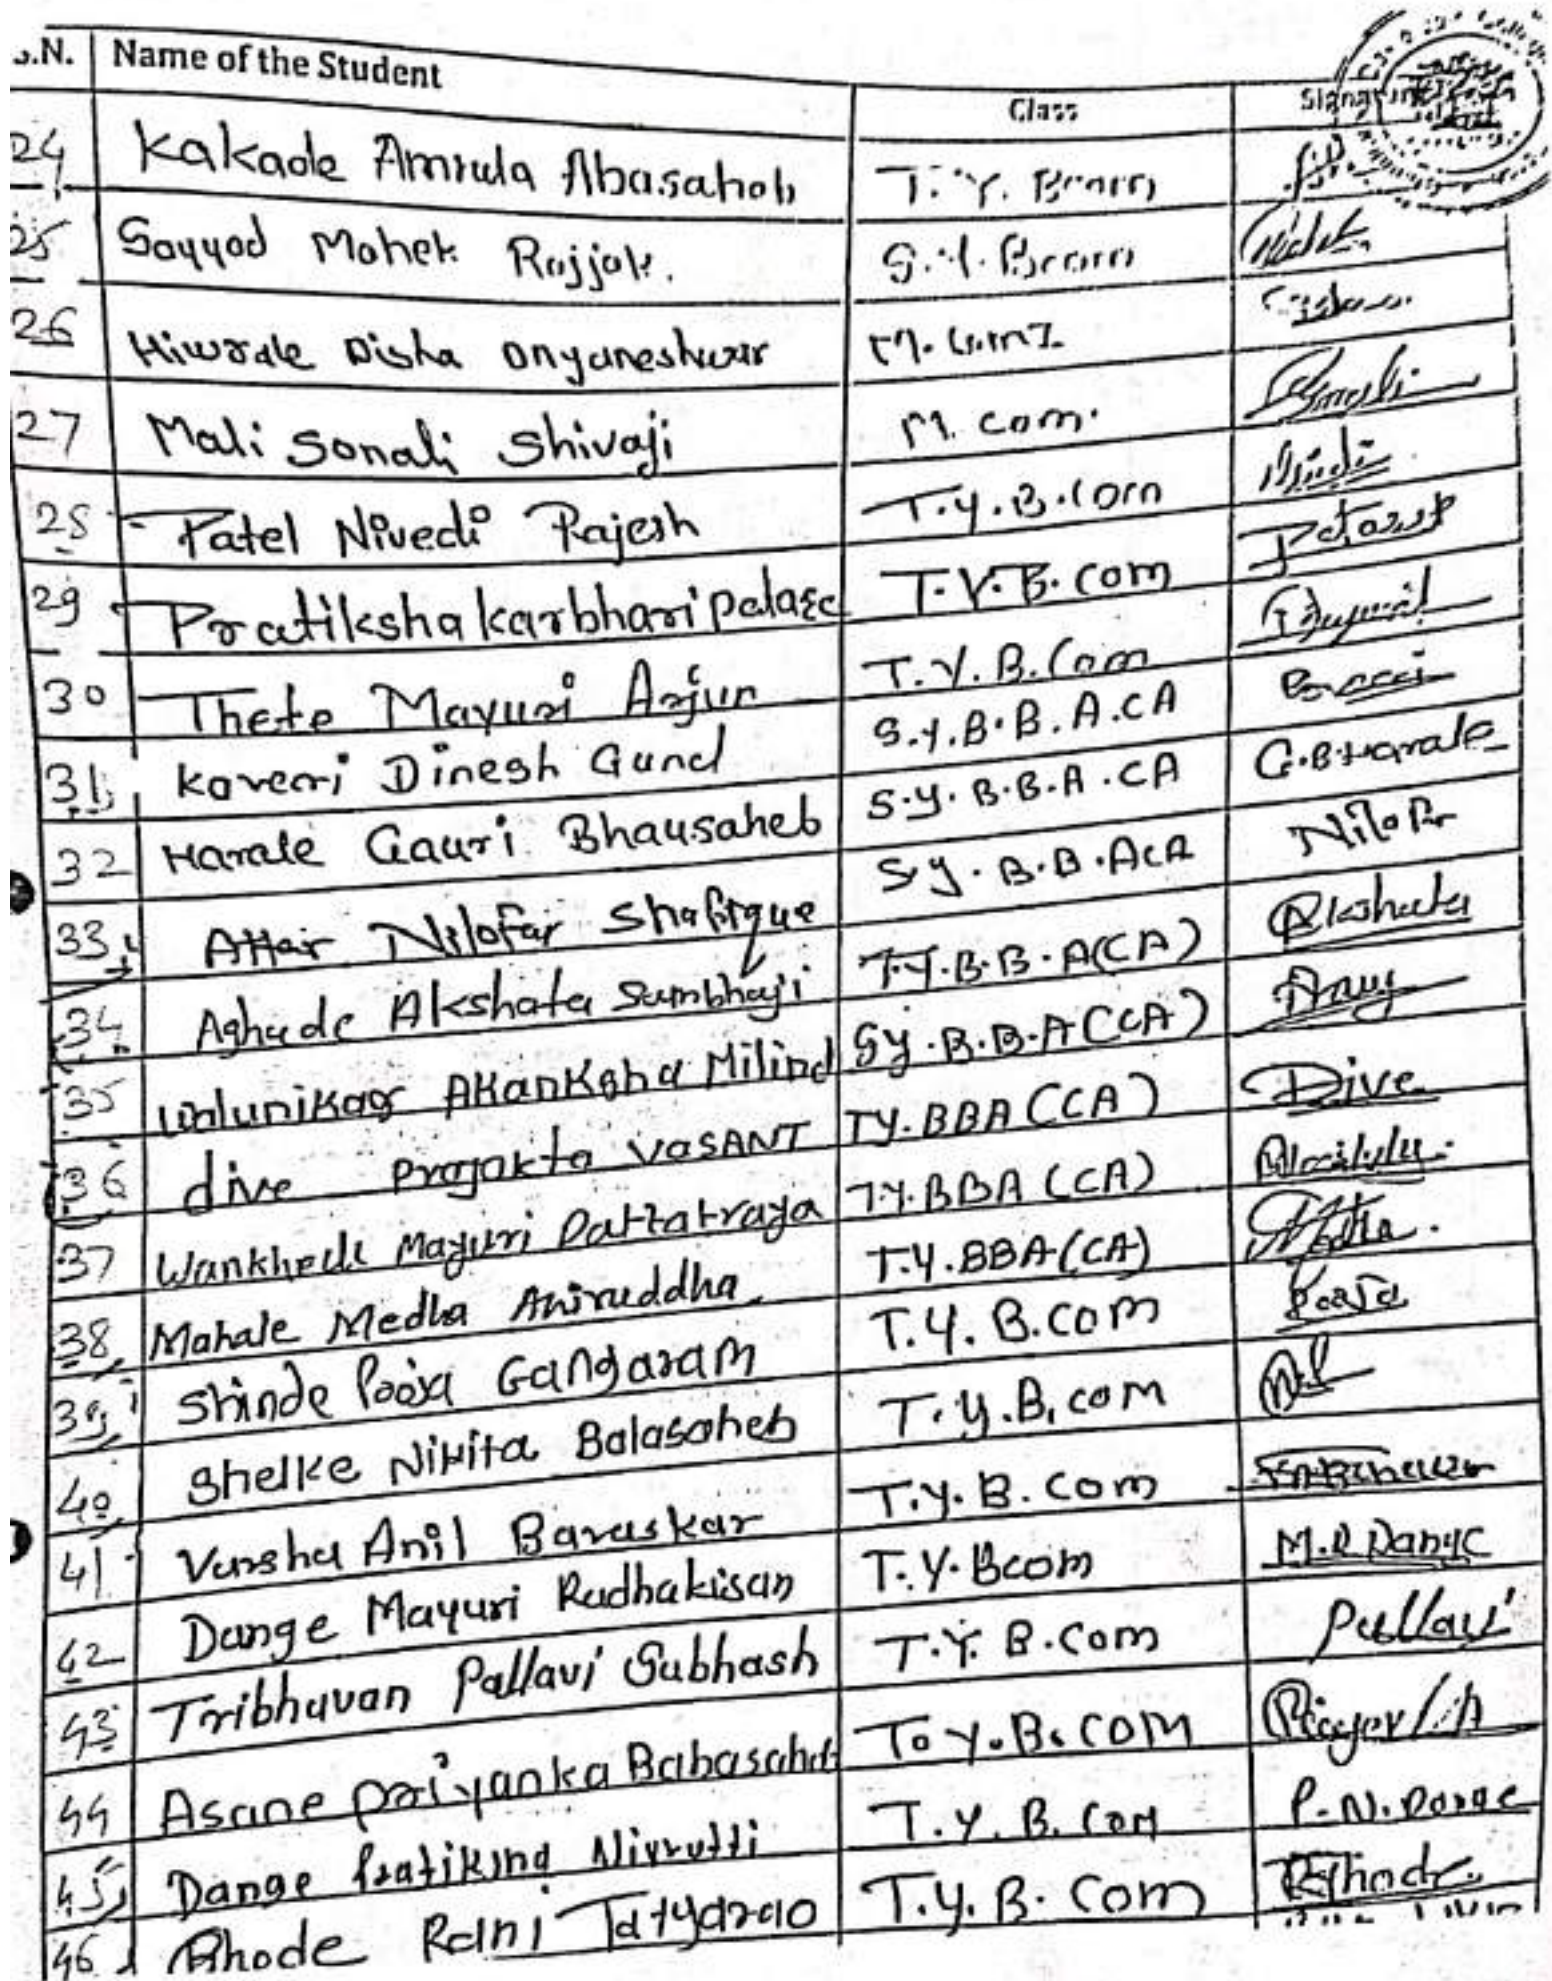 S.N. Name of the Student Class Signature
24 Kakade Amruta Abasaheb T.Y. Bcom
25 Sayyad Mahek Rajjak. S.Y. Bcom
26 Hiwrale Disha Dnyaneshwar M.Com I
27 Mali Sonali Shivaji M. com. Sonali
28 Patel Nivedi Rajesh T.Y.B.Com
29 Pratiksha karbhari palase T.Y.B.com
30 Thete Mayuri Arjun T.Y.B.Com
31 Kaveri Dinesh Gund S.Y.B.B.A.CA
32 Harale Gauri Bhausaheb S.Y.B.B.A.CA G.B.Harale
33 Attar Nilofar Shafique S.Y.B.B.A CA Nilofar
34 Aghade Akshata Sambhaji T.Y.B.B.A(CA) Akshata
35 Walunikar Akanksha Milind SY.B.B.A(CA)
36 dive Prajakta VASANT TY.BBA (CA) Dive
37 Wankhede Mayuri Dattatraya T.Y.BBA (CA)
38 Mahale Medha Aniruddha T.Y.BBA(CA)
39 Shinde Pooja Gangaram T.Y.B.com Pooja
40 Shelke Nikita Balasaheb T.Y.B.com
41 Varsha Anil Baraskar T.Y.B.com
42 Dange Mayuri Radhakisan T.Y.Bcom M.R.Dange
43 Tribhuvan Pallavi Subhash T.Y.B.Com Pallavi
44 Asane Priyanka Babasaheb T.Y.B.COM
45 Dange Pratiksha Nivrutti T.Y.B.Com P.N.Dange
46 Bhode Rani Tatyarao T.Y.B.Com